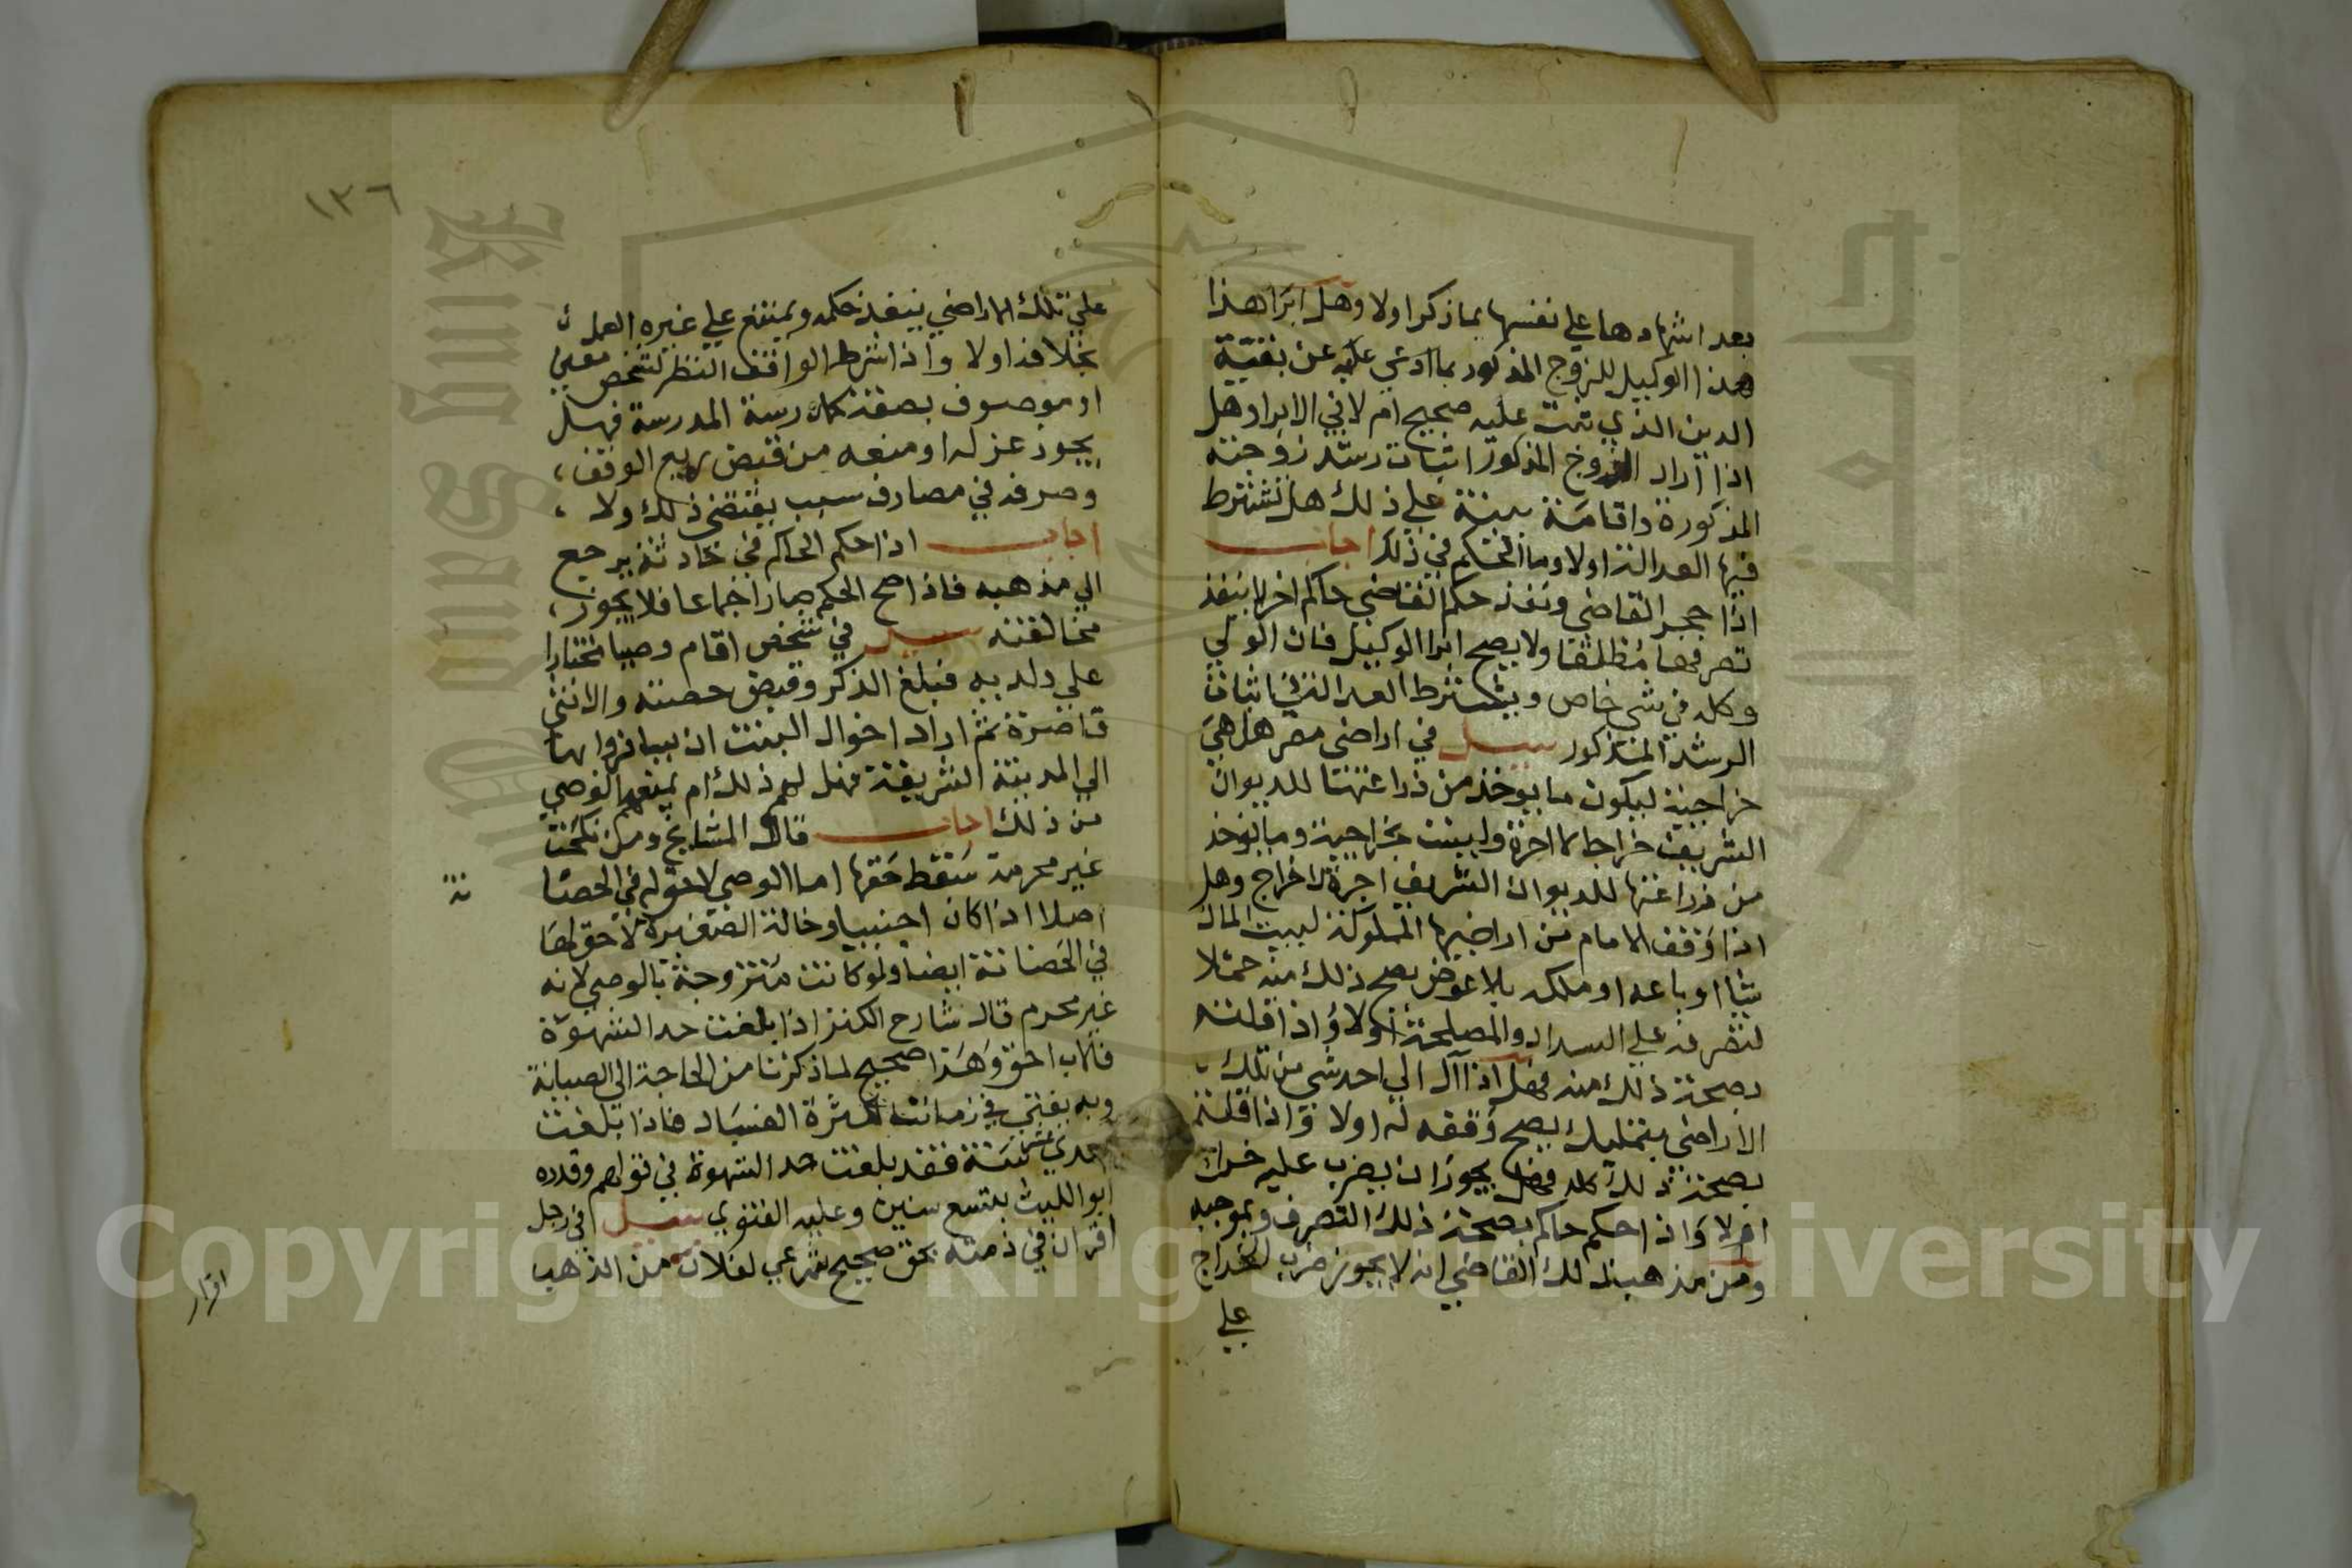 بعد اشهادها علي نفسها بماذكر اولا وهل ابرا هذا
هذا الوكيل للزوج المذكور بما ادعي عليه عن بقية
الدين الذي ثبت عليه صحيح ام لا في الابرا وهل
اذا اراد الزوج المذكور اثبات رشد زوجته
المذكورة واقامة بينة علي ذلك هل تشترط
فيها العدالة اولا وما الحكم في ذلك اجاب
اذا حجر القاضي ونفذ حكم القاضي حاكم اخر لا ينفذ
تصرفها مطلقا ولا يصح ابرا الوكيل فان الولي
وكله في شي خاص ويشترط العدالة في اثبات
الرشد المذكور سيل في اراضي مصر هل هي
خراجية ليكون ما يوخذ من زراعتها للديوان
الشريف خراجا لا اجرة وليست بخراجية وما يوخذ
من زراعتها للديوان الشريف اجرة لا خراج وهل
اذا وقف الامام من اراضيها المملوكة لبيت المال
شيا او باعه او ملكه بلا عوض يصح ذلك منه حملا
لتصرفه علي السداد والمصلحة اولا واذا قلتم
بصحة ذلك منه فهل اذا آل الي احد شي من تلك
الاراضي بتمليك يصح وقفه له اولا واذا قلتم
بصحة ذلك كله فهل يجوز ان يضرب عليه خراج
ام لا واذا حكم حاكم بصحة ذلك التصرف وبموجبه
ومن مذهب ذلك القاضي انه لا يجوز ضرب الخراج
علي
١٣٦
علي تلك الاراضي ينفذ حكمه ويمتنع علي غيره العمل
بخلافه اولا واذا شرط الواقف النظر لشخص معين
او موصوف بصفة كمدرسة المدرسة فهل
يجوز عزله او منعه من قبض ريع الوقف
وصرفه في مصارف سبب يقتضي ذلك ولا
اجاب اذا حكم الحاكم في حادثة يرجع
الي مذهبه فاذا صح الحكم صار اجماعا فلا يجوز
مخالفته سيل في شخص اقام وصيا مختارا
علي ولديه فبلغ الذكر وقبض حصته والانثي
قاصرة ثم اراد اخوال البنت ان يسافروا بها
الي المدينة الشريفة فهل لهم ذلك ام يمنعهم الوصي
من ذلك اجاب قال المشايخ ومن نكحت
غير محرمة سقط حقها اما الوصي لا حق له في الحضا
نة
اصلا اذا كان اجنبيا وخالة الصغيرة لا حق لها
في الحضانة ايضا ولو كانت متزوجة بالوصي لانه
غير محرم قال شارح الكنز اذا بلغت حد الشهوة
فالاب احق وهذا صحيح لما ذكرنا من الحاجة الي الصيانة
وبه يفتي في زماننا لكثرة الفساد فاذا بلغت
احدي عشر سنة فقد بلغت حد الشهوة في قولهم وقدره
ابو الليث بتسع سنين وعليه الفتوي سيل في رجل
اقر ان في ذمته بحق صحيح شرعي لفلان من الذهب
اقرار
Copyright © King Saud University